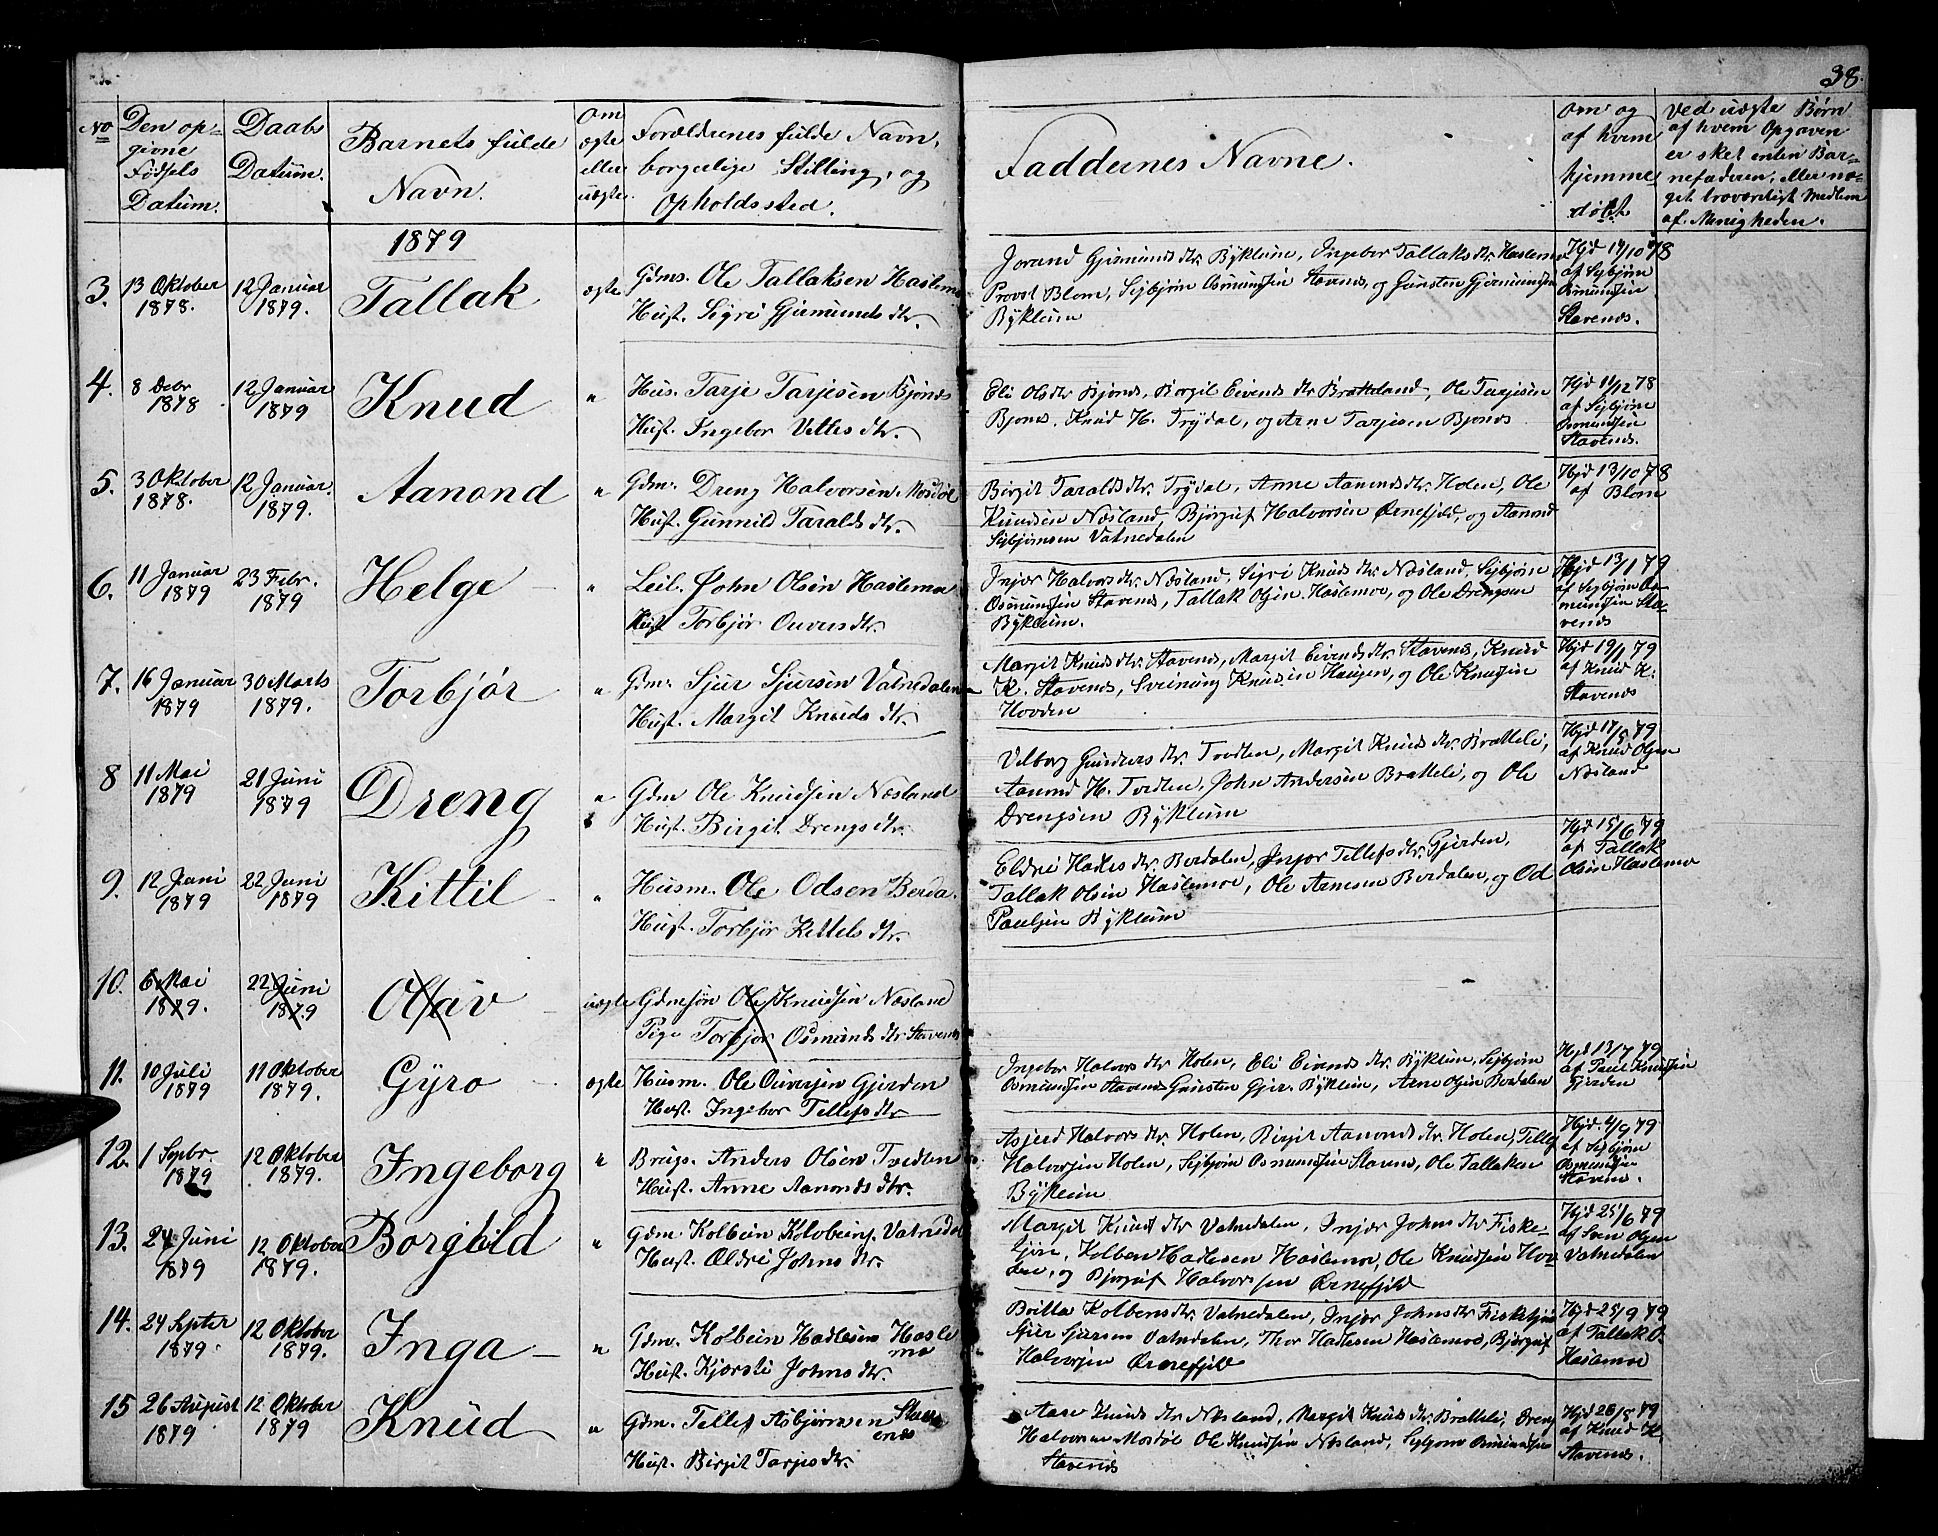 38.
No
Den op-
givne
Fødsels
Datum.
Daabs
Datum.
Barnets fulde
Navn.
Om
ægte
eller
uægte.
Forældrenes fulde Navn,
borgerlige Stilling, og
Opholdssted.
Faddernes Navne.
Om og
af hvem
hjemme-
døbt
Ved uægte Børn
af hvem Opgaven
er sket enten Bar-
nefaderen, eller no-
get troværdigt Medlem
af Menigheden.
1879
3. 13 Oktober 1878. 12 Januar 1879. Tallak ægte
Gdms. Ole Tallaksen Haslemo
Hust. Sigri Gjermunds dtr.
Jorand Gjermunds dtr. Bykleum, Ingebor Tallaks dtr. Haslemo
Provst Blom, Sejbjørn Osmundsen Stavenes, og Gunsten Gjermundsen
Bykleum
Hjd 14/10 78
af Sejbjørn
Osmundsen
Stavenes.
4. 8 Debr 1878 12 Januar 1879 Knud "
Hus. Tarje Tarjesen Bjones
Hust. Ingebor Vetles dtr.
Eli Olsdtr. Bjones, Birgit Eivends dtr. Bratteland, Ole Tarjesen
Bjones, Knud H. Trydal, og Arne Tarjesen Bjones
Hjd 11/12 78
af Sejbjørn
Osmundsen
Stavenes.
5. 3 Oktober 1878. 12 Januar. 1879. Aanond "
Gdm. Dreng Halvorsen Mosdøl
Hust. Gunnild Taralds dtr.
Birgit Taralds dtr. Trydal, Anne Aanonds dtr. Holen, Ole
Knudsen Næsland, Bjørguf Halvorsen Ørnefjeld, og Aanond
Sejbjørnsen Vatnedalen
Hjd 13/10 78
af Blom
6. 11 Januar 1879 23 Febr. 1879 Helge "
Leil. John Olsen Haslemoe
Hust Torbjør Ouvers dtr.
Injær Halvors dtr. Næsland, Sigri Knuds dtr. Næsland, Sejbjørn
Osmundsen Stavenes, Tallak Olsen Haslemoe, og Ole Drengsen
Bykleum.
Hjd 13/1 79
af Sejbjørn Os-
mundsen Sta-
venes
7. 16 Januar 1879 30 Marts 1879. Torbjør "
Gdm. Sjur Sjursen Vatnedalen
Hust. Margit Knuds dtr.
Margit Knuds dtr. Stavenes, Margit Eivends dtr. Stavenes, Knud
K. Stavenes, Sveinung Knudsen Haugen, og Ole Knudsen
Hovden
Hjd 19/1 79
af Knud K.
Stavenes
8 11 Mai 1879 21 Juni 1879 Dreng "
Gdm Ole Knudsen Næsland
Hust. Birgit Drengs dtr.
Vilborg Gunders dtr. Tvedten, Margit Knuds dtr. Bratteli,
Aanond H. Tvedten, John Andersen Bratteli, og Ole
Drengsen Bykleum
Hjd 17/5 79
af Knud Olsen
Næsland
9. 12 Juni 1879 22 Juni 1879 Kittil "
Husm. Ole Odsen Berda.
Hust. Torbjør Kettels dtr.
Eldri Hadles dtr. Berdalen, Injær Tellefs dtr. Gjerden,
Tallak Olsen Haslemoe, Ole Arnesen Berdalen, og Od
Paulsen Bykleum
Hjd 15/6 79
af Tallak
Olsen Haslemoe
10. 6 Mai 1879. 22 Juni 1879 Olav uægte
Gdmssøn Ole Knudsen Næsland
Pige Torbjør Osmunds dtr Stavenes
11. 10 Juli 1879 11 Oktober 1879. Gyro ægte
Husm. Ole Ouversen Gjerden
Hust. Ingebor Tellefs dtr
Ingebor Halvors dtr. Holen, Eli Eivends dtr. Bykleum, Sejbjørn
Osmundsen Stavenes Gunsten Gjer. Bykleum, Arne Olsen Berdalen
Hjd 13/7 79
af Paul Knudsen
Gjerden
12. 1 Sepbr. 1879 12 Oktober 1879. Ingeborg "
Brugs. Anders Olsen Tvedten
Hust. Anne Aanonds dtr.
Asjerd Halvors dtr. Holen, Birgit Aanonds dtr. Holen, Tellef
Halvorsen Holen, Sejbjørn Osmundsen Stavenes, Ole Tallaksen
Bykleum
Hjd 4/9 79
af Sejbjørn
Osmundsen
Stavenes.
13. 24 Juni 1879 12 Oktober 1879. Borghild "
Gdm Kolbein Kolbeins. Vatnedal
Hust. Ældri Johns dtr.
Margit Knuds dtr. Vatnedalen, Injær Johns dtr. Fiske-
tjøn, Kolben Hadlesen Haslemoe, Ole Knudsen Hov-
den, og Bjørguf Halvorsen Ørnefjeld
Hjd 25/6 79
af Sven Olsen
Vatnedalen
14. 24 Septer 1879. 12 Oktober 1879. Inga "
Gdm. Kolbein Hadlesen Haslemo
Hust. Kjersti Johns dtr.
Britta Kolbens dtr. Vatnedalen, Injær Johns dtr Fisketjøn
Sjur Sjursen Vatnedalen, Thor Hadlesen Haslemoe, Bjørguf
Halvorsen Ørnefjeld
Hjd 25/9 79
af Tallak O.
Haslemoe
15 26 August 1879 12 Oktober 1879 Knud "
Gdm. Tellef Asbjørnsen Stavenes
Hust. Birgit Tarjes dtr.
Aase Knuds dtr. Næsland, Margit Knuds dtr. Bratteli, Dreng
Halvorsen Mosdøl Ole Knudsen Næsland, Sejbjørn Osmundsen
Stavenes
Hjd 26/8 79
af Knud K.
Stavenes.